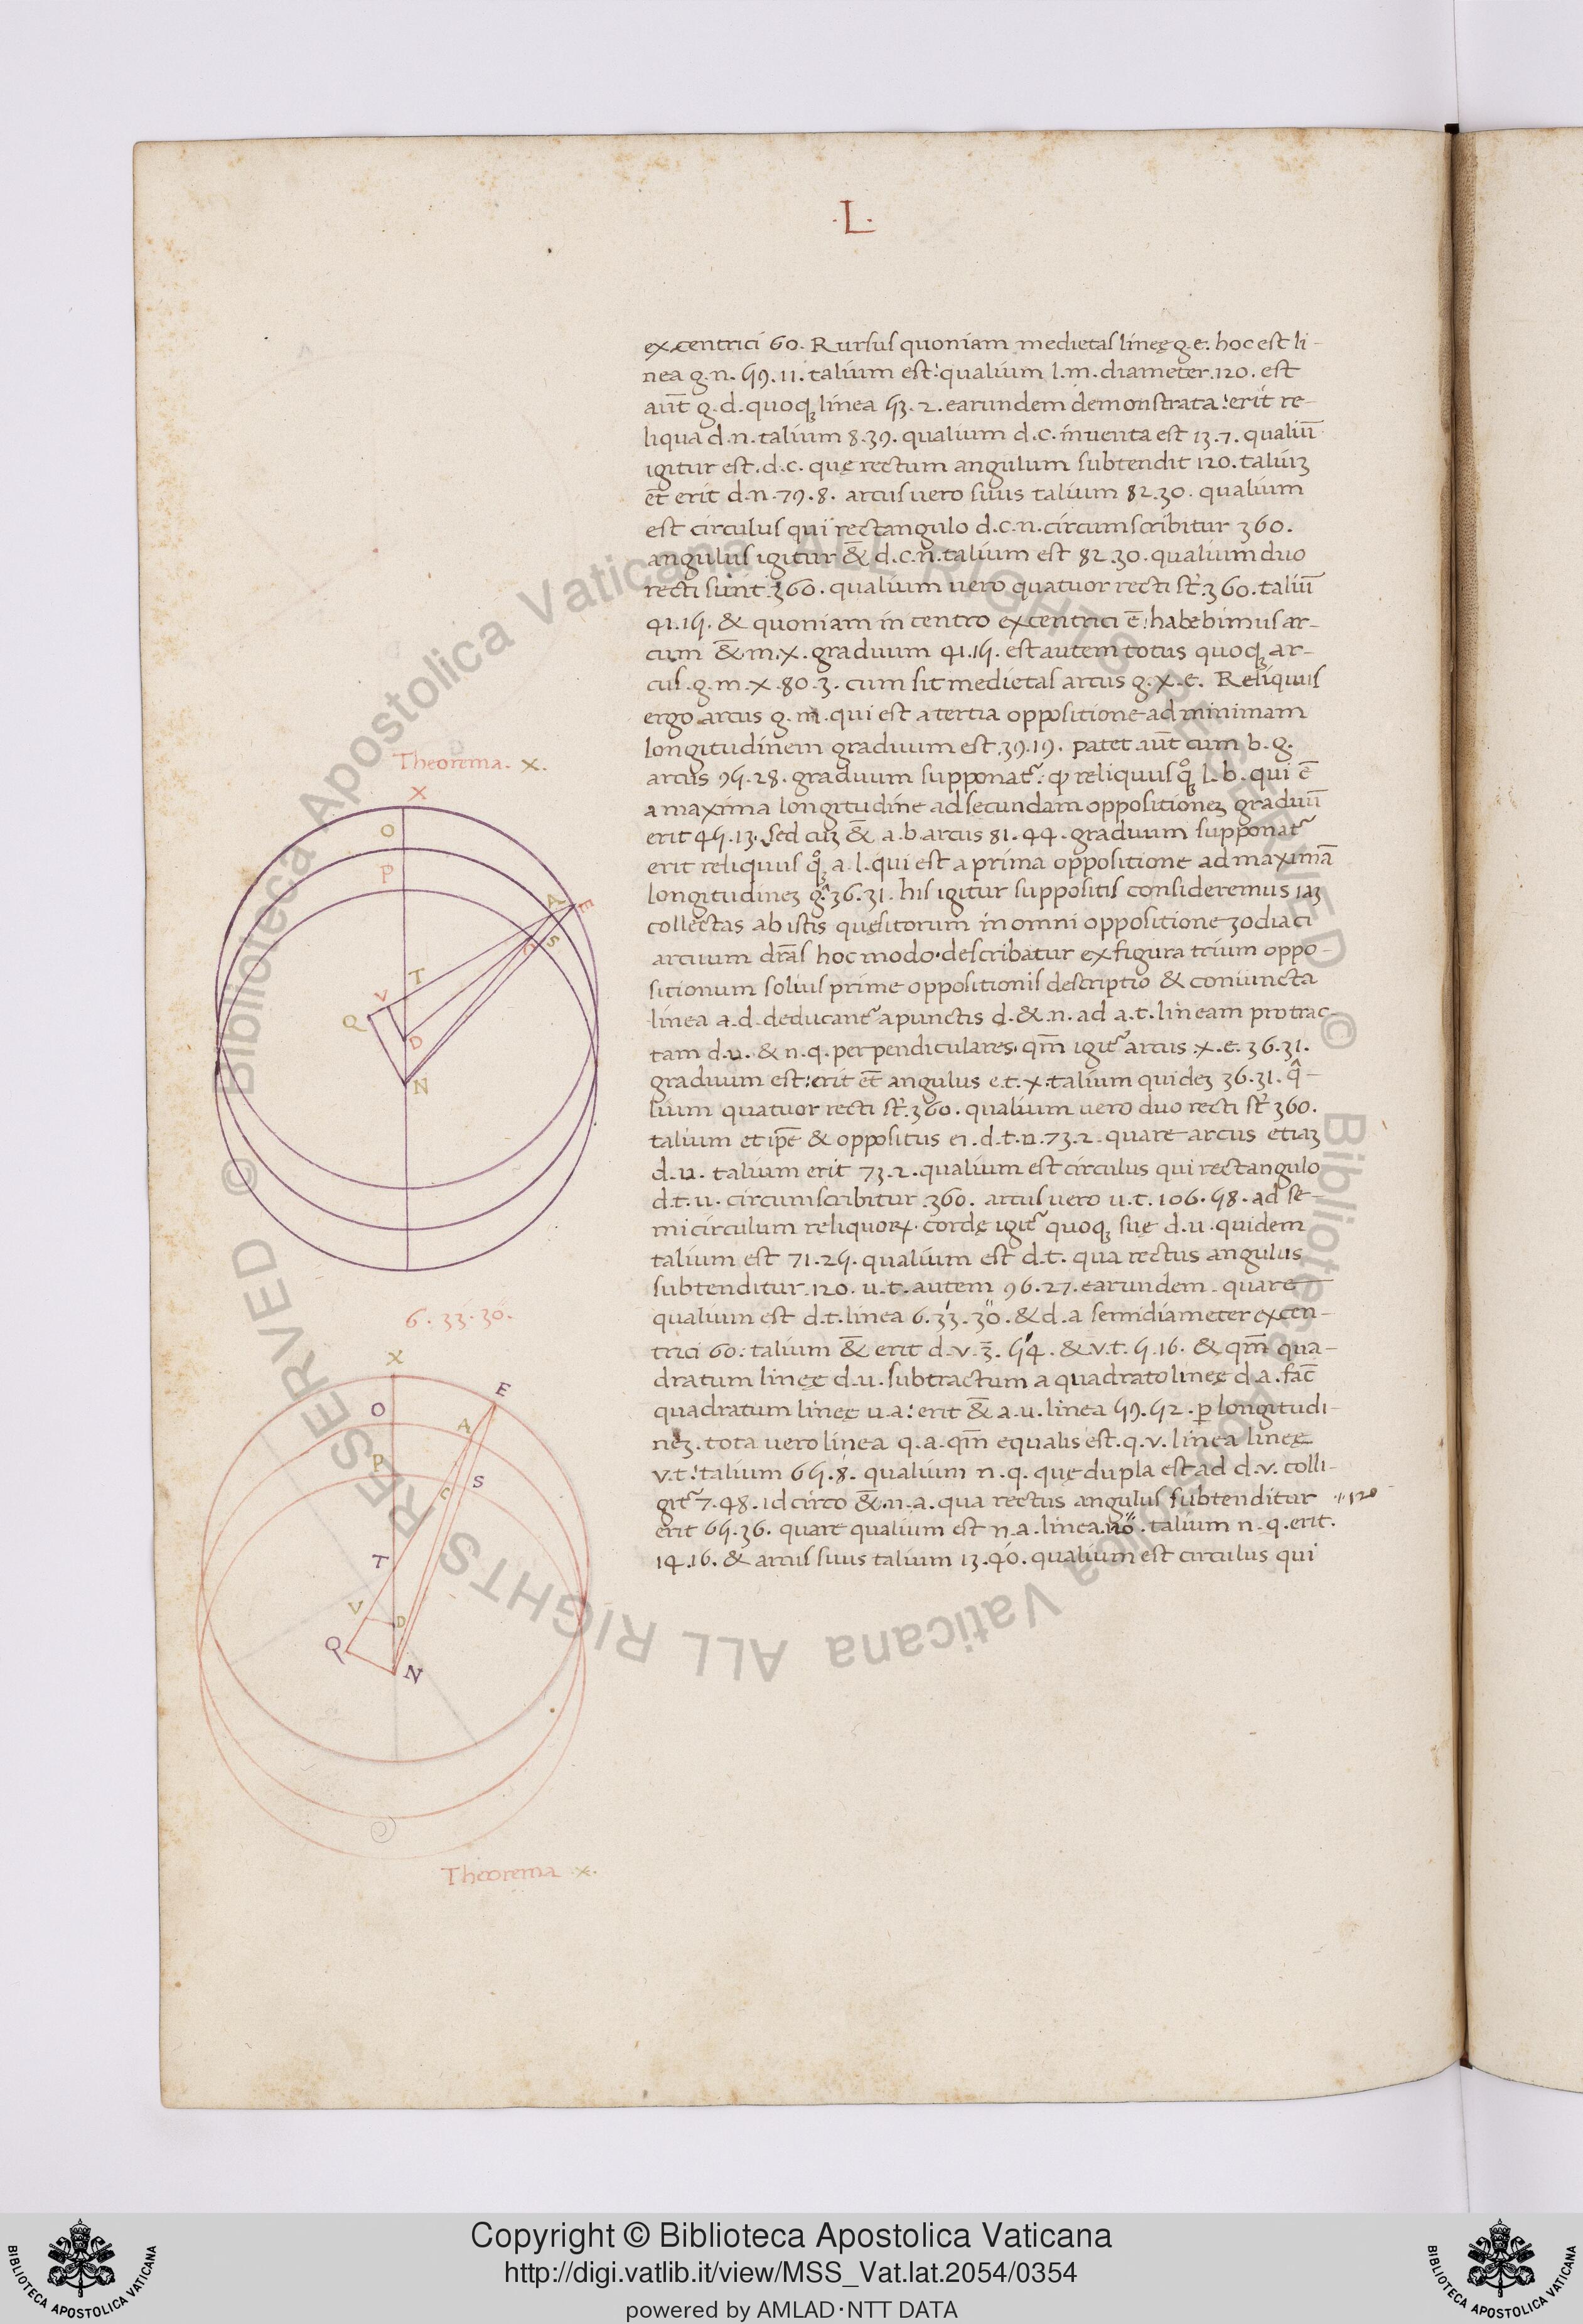 ·L·
excentrici 60. Rursus quoniam medietas lineę g.e. hoc est li-
nea g.n. 59.11. talium est: qualium l.m. diameter .120. est
aut̄ g.d. quoq; linea 53.2. earundem demonstrata: erit re-
liqua d.n. talium 8.39. qualium d.c. inuenta est 13.7. qualiū
igitur est .d.c. quę rectum angulum subtendit 120. taliuʒ
et̄ erit d.n. 79.8. arcus uero suus talium 82.30. qualium
est circulus qui rectangulo d.c.n. circumscribitur 360.
angulus igitur &̄ d.c.n. talium est 82.30. qualium duo
recti sunt .360. qualium uero quatuor recti st̄ .360. taliū
41.15. & quoniam in centro excentrici ē: habebimus ar-
cum &̄ m.x. graduum 41.15. est autem totus quoq; ar-
cus .g.m.x. 80.3. cum sit medietas arcus g.x.e. Reliquus
ergo arcus g.m. qui est a tertia oppositione ad minimam
longitudinem graduum est .39.19. patet aut̄ cum b.g.
arcus 95.28. graduum supponat᷑: ꝙ reliquus qͦꝫ l.b. qui ē
a maxima longitudine ad secundam oppositioneʒ graduū
erit 45.13. Sed cuʒ &̄ a.b. arcus 81.44. graduum supponat᷑
erit reliquus qͦꝫ a.l. qui est a prima oppositione ad maximā
longitudineʒ g. 36.31. his igitur suppositis consideremus iaʒ
collectas ab istis quęsitorum in omni oppositione zodiaci
arcuum dr̄as hoc modo. describatur ex figura trium oppo-
sitionum solius prime oppositionis descriptio & coniuncta
linea a.d. deducant᷑ a punctis d. & n. ad a.t. lineam protrac-
tam d.u. & n.q. perpendiculares. qm̄ igit᷑ arcus .x.e. 36.31.
graduum est: erit et̄ angulus e.t.x. talium quideʒ 36.31. q̂-
lium quatuor recti st̄ .360. qualium uero duo recti st̄ 360.
talium et ip̄e & oppositus ei .d.t.n. 73.2. quare arcus etiaʒ
d.u. talium erit 73.2. qualium est circulus qui rectangulo
d.t.u. circumscribitur .360. arcus uero u.t. 106.58. ad se-
micirculum reliquoꝝ. cordę igit᷑ quoq; suę d.u. quidem
talium est 71.25. qualium est d.t. qua rectus angulus
subtenditur .120. u.t. autem 96.27. earundem. quare
qualium est d.t. linea 6.33.30. & d.a semidiameter excen-
trici 60. talium &̄ erit d.v. 3. 54. & v.t. 5.16. & qm̄ qua-
dratum lineę d.u. subtractum a quadrato lineę d.a. fac̄
quadratum lineę u.a: erit &̄ a.u. linea 59.52. ꝑ longitudi-
neʒ. tota uero linea q.a. qm̄ equalis est .q.v. linea lineę
v.t: talium 65.8. qualium n.q. quę dupla est ad d.v. colli-
git᷑ 7.48. idcirco &̄ .n.a. qua rectus angulus subtenditur
·120
erit 65.36. quare qualium est n.a. linea .110. talium n.q. erit.
14.16. & arcus suus talium 13.40. qualium est circulus qui
Theorema. X.
X
O
P
A
E
S
C
T
V
Q
D
N
6.33.30.
X
E
O
A
P
S
C
T
V
D
Q
N
Theorema x.
© Biblioteca Apostolica Vaticana ALL RIGHTS RESERVED © Biblioteca Apostolica Vaticana ALL RIGHTS RESERVED
BIBLIOTECA APOSTOLICA VATICANA
Copyright © Biblioteca Apostolica Vaticana
http://digi.vatlib.it/view/MSS_Vat.lat.2054/0354
powered by AMLAD·NTT DATA
BIBLIOTECA APOSTOLICA VATICANA